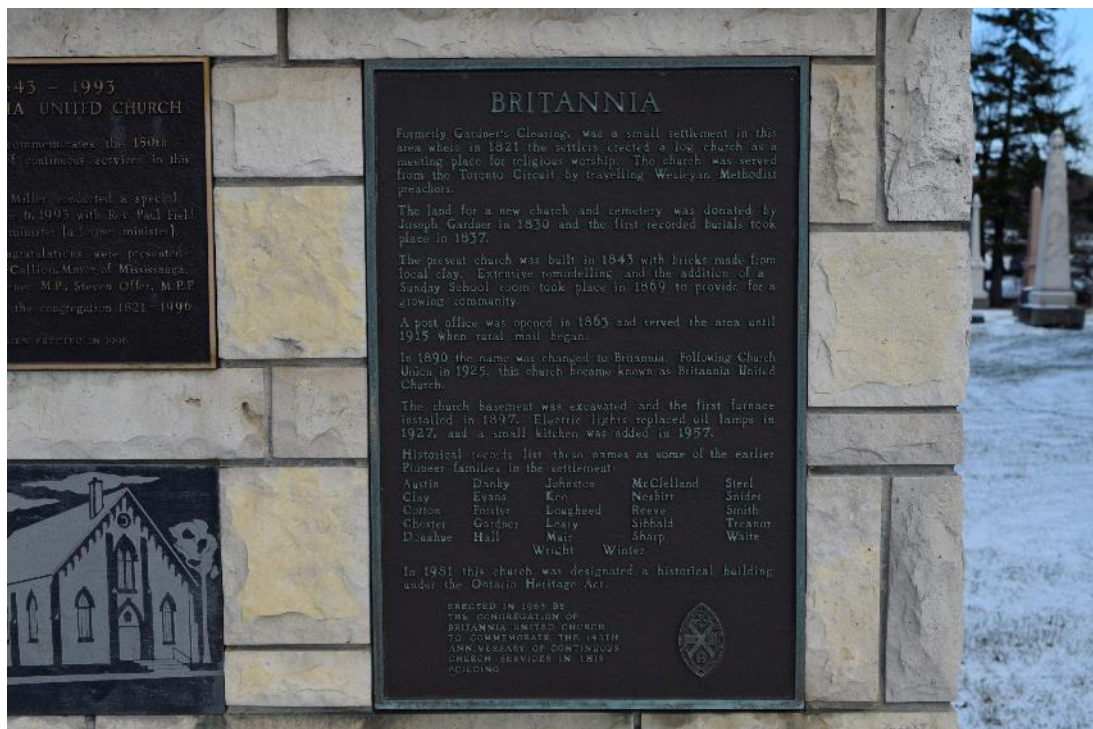 43 - 1993
IA UNITED CHURCH
commemorates the 150th
of continuous services in this
Miller conducted a special
6, 1993 with Rev. Paul Field
minister (a former minister).
gratulations were presented
Callion, Mayor of Mississauga,
rner M.P., Steven Offer, M.P.P.
the congregation 1821 - 1996
ERECTED IN 1996
BRITANNIA
Formerly Gardner's Clearing, was a small settlement in this
area where in 1821 the settlers erected a log church as a
meeting place for religious worship. The church was served
from the Toronto Circuit by travelling Wesleyan Methodist
preachers.
The land for a new church and cemetery was donated by
Joseph Gardner in 1830 and the first recorded burials took
place in 1837.
The present church was built in 1843 with bricks made from
local clay. Extensive remodelling and the addition of a
Sunday School room took place in 1869 to provide for a
growing community.
A post office was opened in 1863 and served the area until
1915 when rural mail began.
In 1890 the name was changed to Britannia. Following Church
Union in 1925, this church became known as Britannia United
Church.
The church basement was excavated and the first furnace
installed in 1897. Electric lights replaced oil lamps in
1927, and a small kitchen was added in 1957.
Historical records list these names as some of the earlier
Pioneer families in the settlement:
Austin Danby Johnston McClelland Steel
Clay Evans Kee Nesbitt Snider
Cotton Forster Lougheed Reeve Smith
Chester Gardner Leary Sibbald Treanor
Donahue Hall Muir Sharp Waite
Wright Winter
In 1981 this church was designated a historical building
under the Ontario Heritage Act.
ERECTED IN 1983 BY
THE CONGREGATION OF
BRITANNIA UNITED CHURCH
TO COMMEMORATE THE 140TH
ANNIVERSARY OF CONTINUOUS
CHURCH SERVICES IN THIS
BUILDING